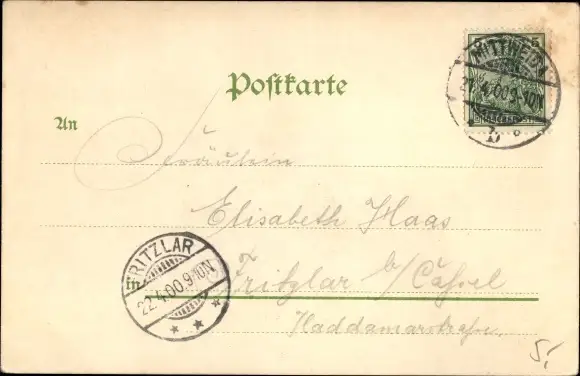 Postkarte
5
MITTWEIDA
21.4.00.9-10N
b
An
Fräulein
Elisabeth Haas
in Fritzlar b/ Cassel
Haddamarstraße
FRITZLAR
22.4.00.9-10N
5,-